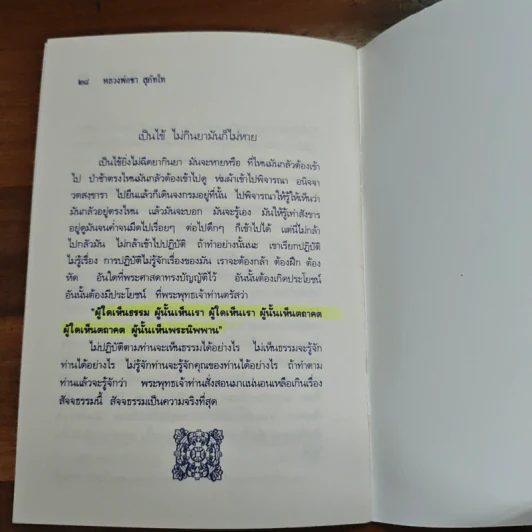 ๒๘ หลวงพ่อชา สุภัทโท
เป็นไข้ ไม่กินยามันก็ไม่หาย
เป็นไข้ยิ่งไม่ฉีดยากินยา มันจะหายหรือ ที่ไหนมันกลัวต้องเข้า
ไป ป่าช้าตรงไหนมันกลัวต้องเข้าไปดู ห่มผ้าเข้าไปพิจารณา อนิจจา
วตสงฺขารา ไปยืนแล้วก็เดินจงกรมอยู่ที่นั้น ไปพิจารณาให้รู้ให้เห็นว่า
มันกลัวอยู่ตรงไหน แล้วมันจะบอก มันจะรู้เอง มันให้รู้เท่าสังขาร
อยู่ดูมันจนค่ำจนมืดไปเรื่อยๆ ต่อไปดึกๆ ก็เข้าไปได้ แต่นี่ไม่กล้า
ไปกลัวมัน ไม่กล้าเข้าไปปฏิบัติ ถ้าทำอย่างนั้นนะ เขาเรียกปฏิบัติ
ไม่รู้เรื่อง การปฏิบัติไม่รู้จักเรื่องของมัน เราจะต้องกล้า ต้องฝึก ต้อง
หัด อันใดที่พระศาสดาทรงบัญญัติไว้ อันนั้นต้องเกิดประโยชน์
อันนั้นต้องมีประโยชน์ ที่พระพุทธเจ้าท่านตรัสว่า
"ผู้ใดเห็นธรรม ผู้นั้นเห็นเรา ผู้ใดเห็นเรา ผู้นั้นเห็นตถาคต
ผู้ใดเห็นตถาคต ผู้นั้นเห็นพระนิพพาน"
ไม่ปฏิบัติตามท่านจะเห็นธรรมได้อย่างไร ไม่เห็นธรรมจะรู้จัก
ท่านได้อย่างไร ไม่รู้จักท่านจะรู้จักคุณของท่านได้อย่างไร ถ้าทำตาม
ท่านแล้วจะรู้จักว่า พระพุทธเจ้าท่านสั่งสอนมาแน่นอนเหลือเกินเรื่อง
สัจจธรรมนี้ สัจจธรรมเป็นความจริงที่สุด